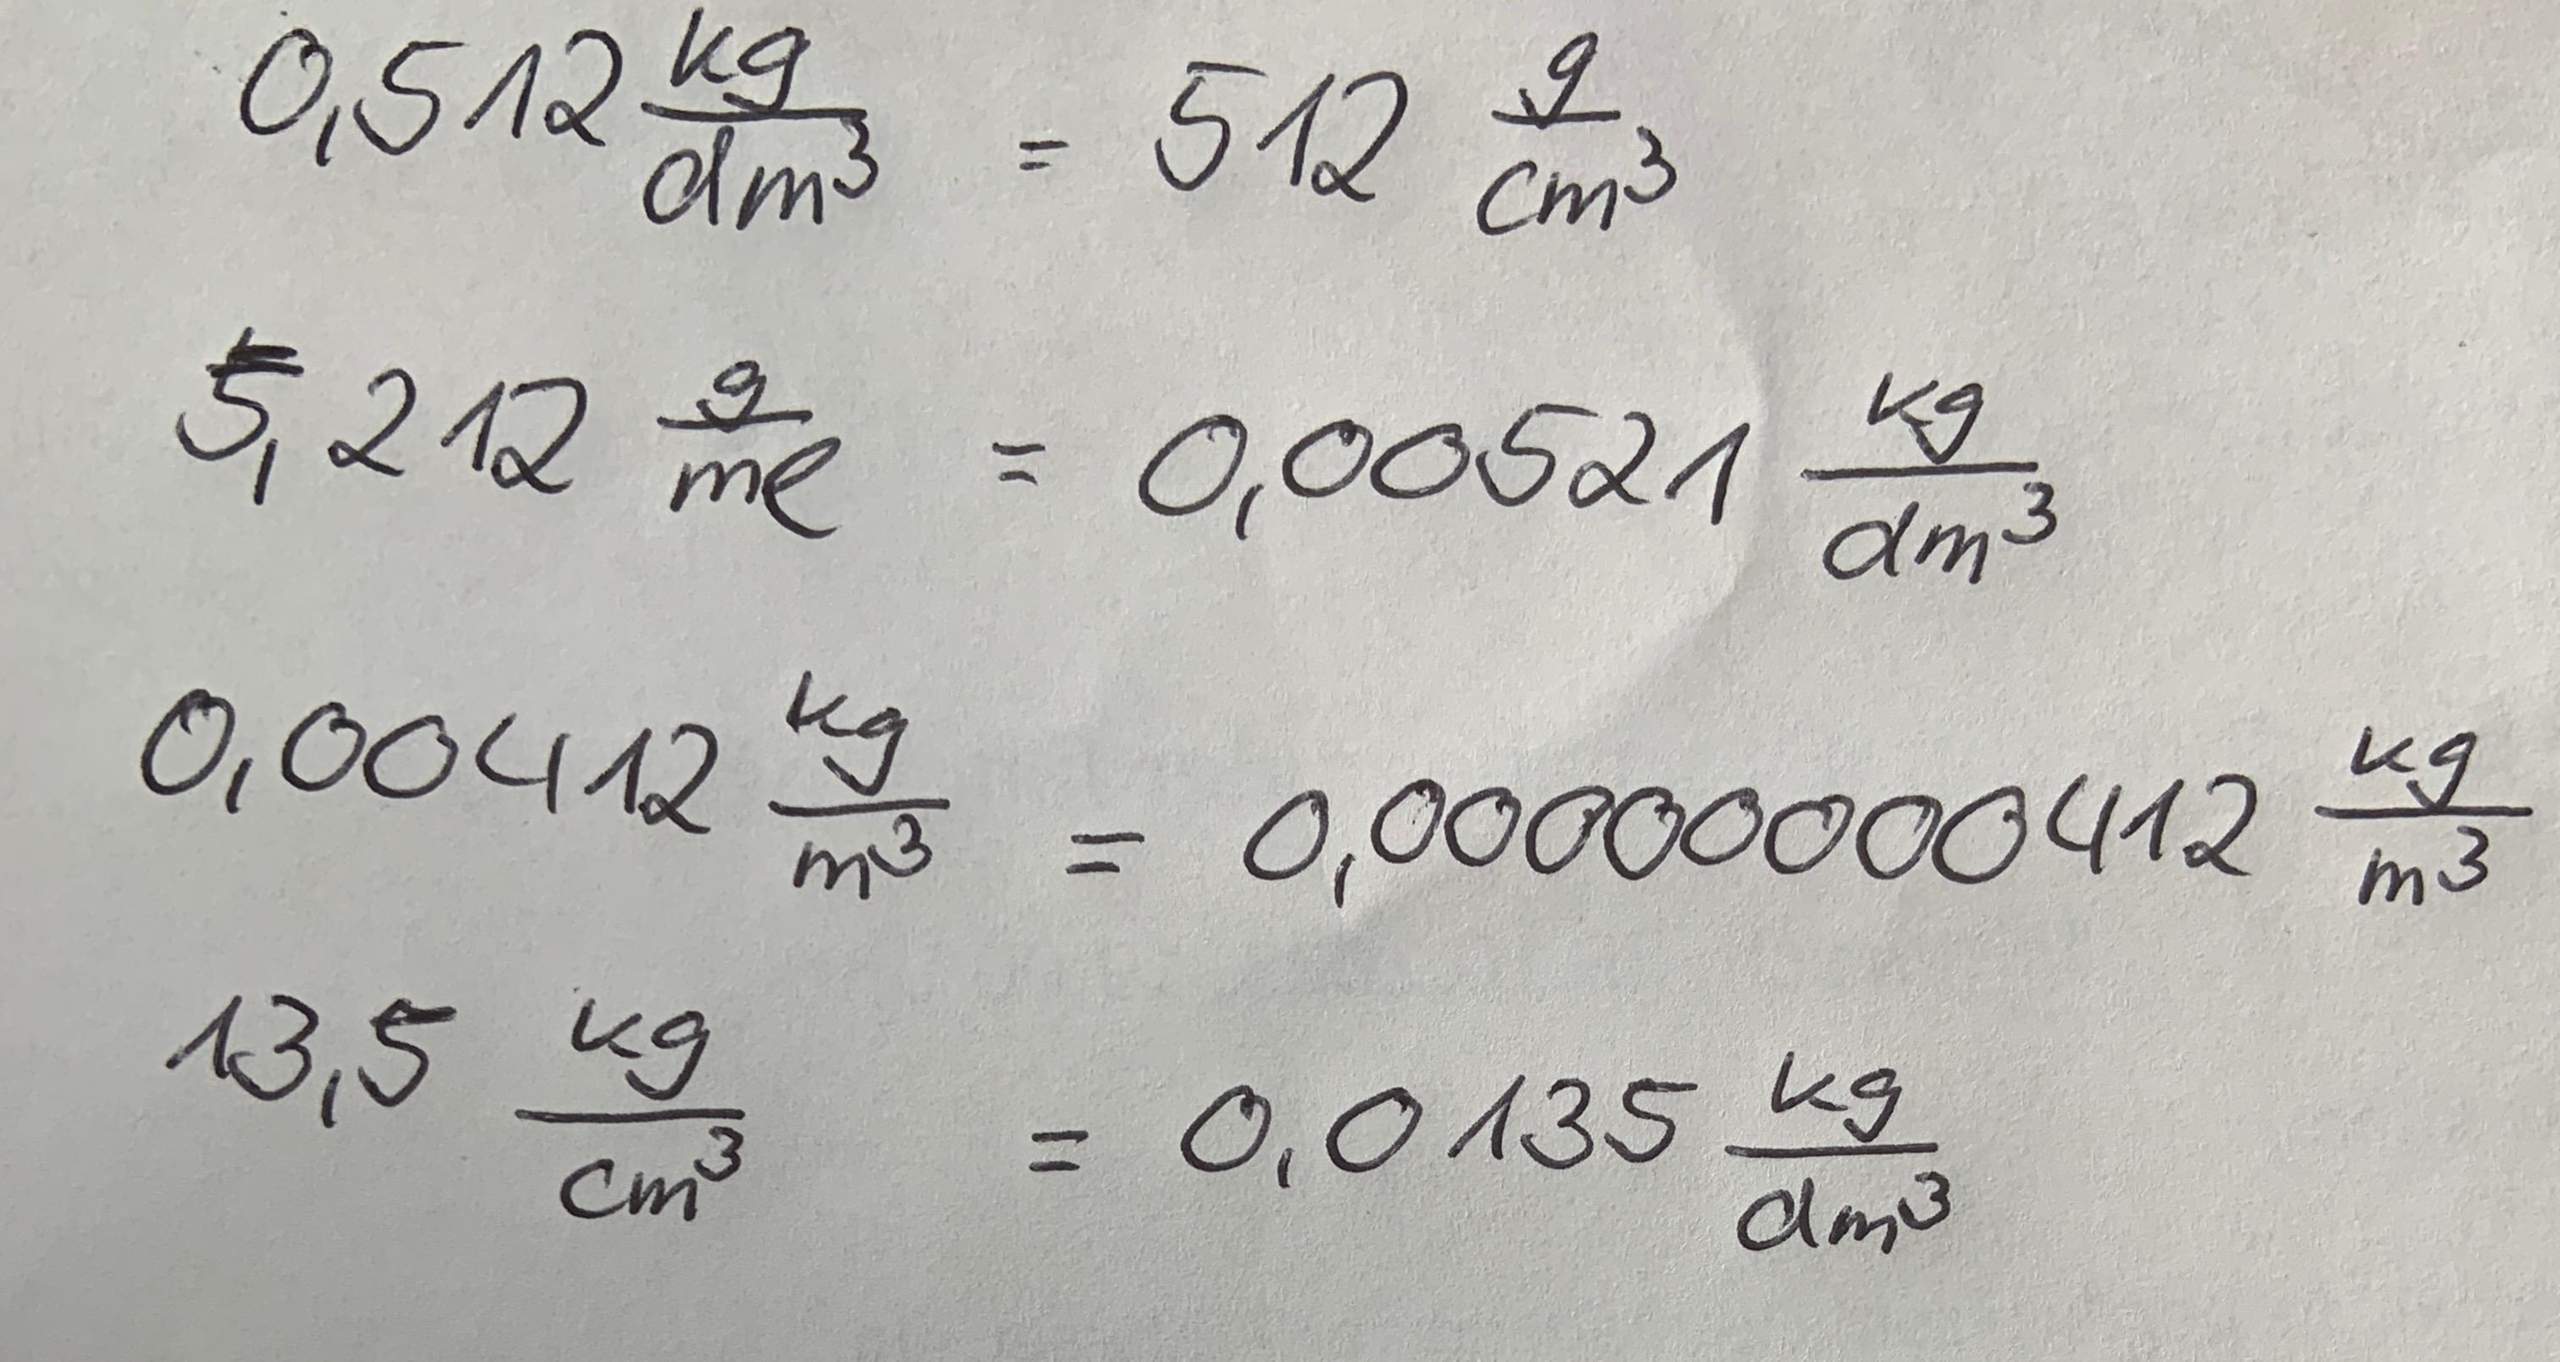 0,512 kg/dm³ = 512 g/cm³
5,212 g/ml = 0,00521 kg/dm³
0,00412 kg/m³ = 0,00000000412 kg/m³
13,5 kg/cm³ = 0,0135 kg/dm³